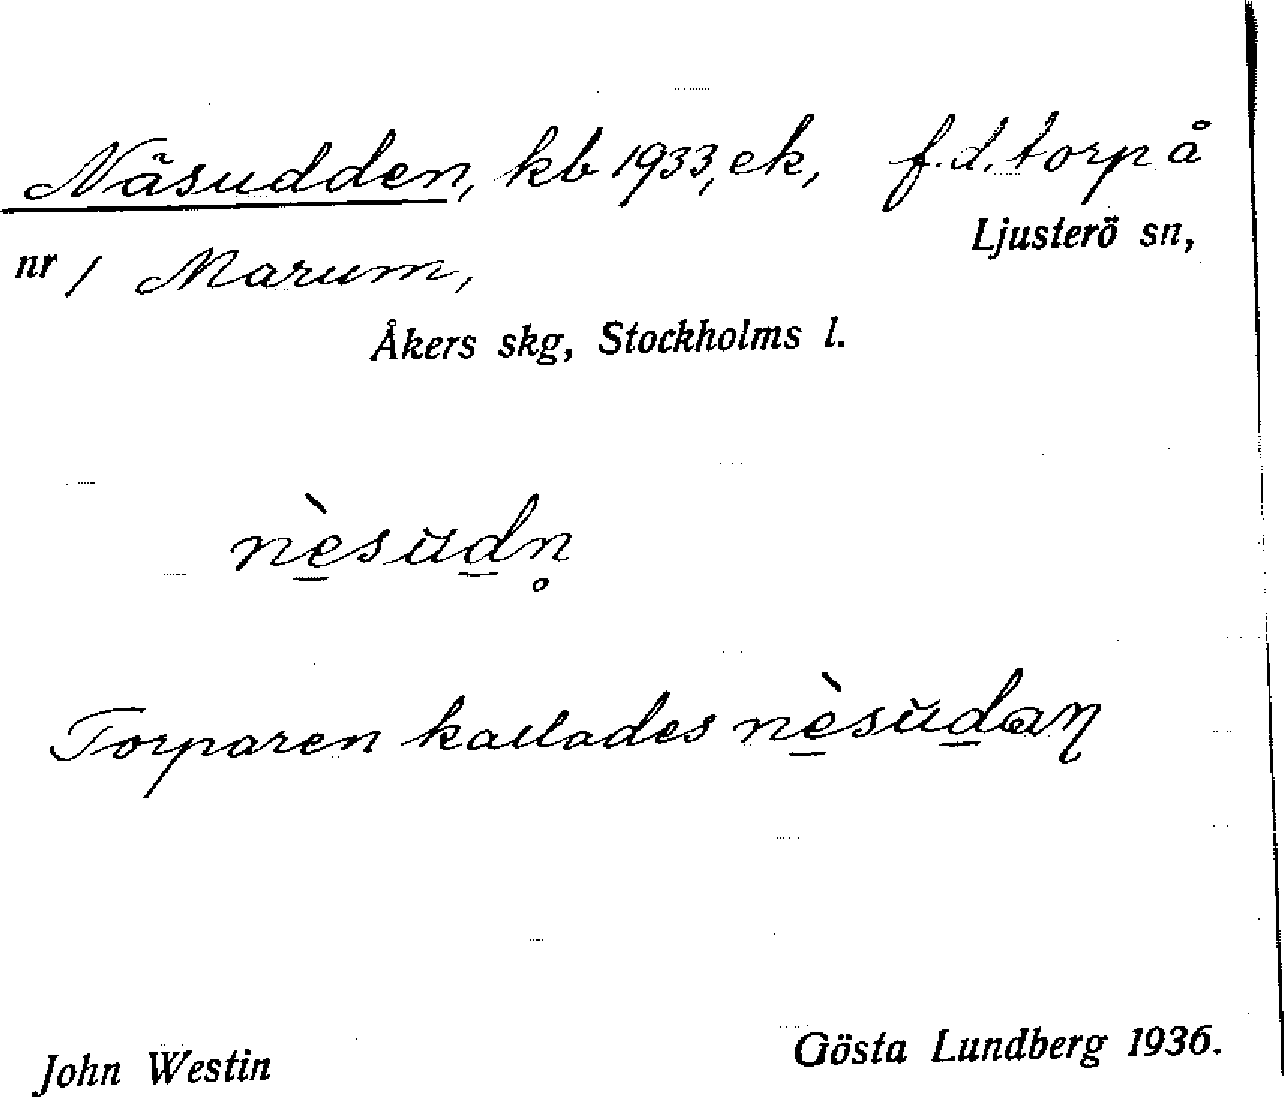 Näsudden, kb 1933, ek, f.d. torp å
Ljusterö sn,
nr 1 Marum,
Åkers skg, Stockholms l.
nè̱sŭḏn̥
Torparen kallades nè̱sŭḏaɳ
John Westin
Gösta Lundberg 1936.